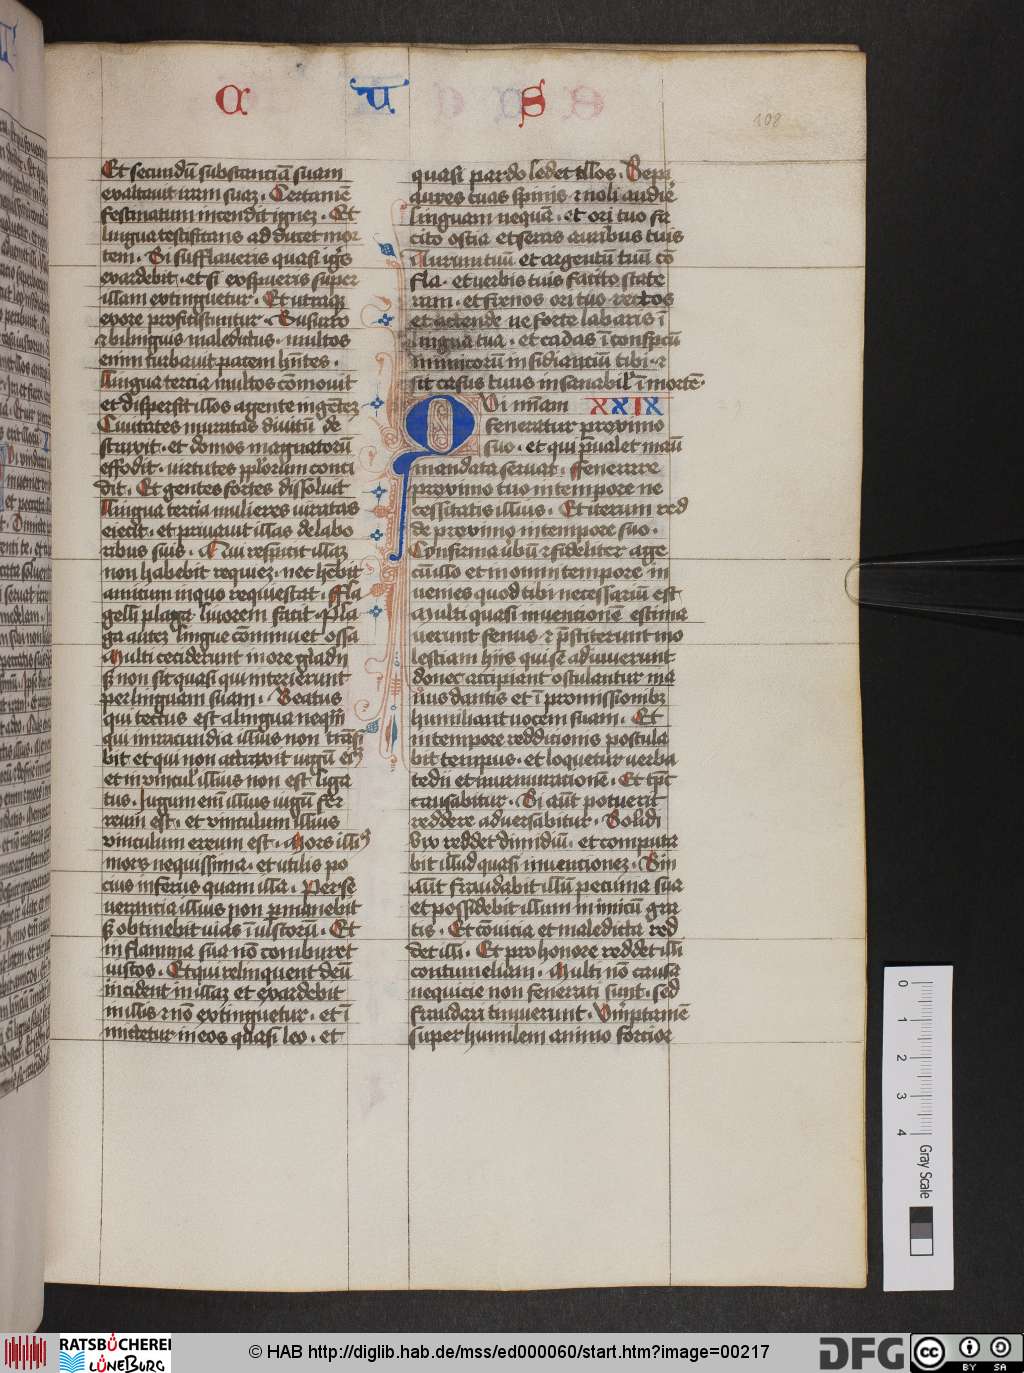 a u s
108
Et secundū substanciā suam
exaltauit iram suaz. Certamē
festinatum incendit ignez. Et
lingua testificans adducet mor
tem. Si sufflaueris quasi ignis
exardebit. et si exspueris super
illam extinguetur. Et utraqz
ex ore proficiscuntur. Susurro
et bilinguis maledictus. multos
enim turbauit pacem hn̄tes.
Lingua tercia multos cōmouit
et dispersit illos a gente in gētez
Ciuitates muratas diuitū de
struxit. et domos magnatorū
effodit. uirtutes pplorum conci
dit. Et gentes fortes dissoluit
Lingua tercia mulieres uiratas
eiecit. et priuauit illas de labo
ribus suis. Qui respicit illaz
non habebit requiez. nec hēbit
amicum in quo requiescat. Fla
gelli plaga liuorem facit. Pla
ga autez lingue cōminuet ossa
Multi ceciderunt in ore gladii
sz non sic quasi qui interierunt
per linguam suam. Beatus
qui tectus est a lingua neqm̄
qui in iracundia illius non trāsi
bit et qui non attraxit iugū ei9
et in vincul' illius non est liga
tus. Iugum eni illius iugū fer
reum est. et vinculum illius
vinculum ereum est. Mors illi9
mors nequissima. et utilis po
cius inferus quam illa. Perse
uerantia illius non p̄manebit
sz obtinebit uias īiustorū. Et
in flamma sua nō comburet
iustos. Et qui relinquent deū
incident in illaz et exardebit
in illis et nō extinguetur. et ī
mittetur in eos quasi leo. et
quasi pardo ledet illos. Sepi
aures tuas spinis et noli audire
linguam nequā. et ori tuo fa
cito ostia et seras auribus tuis
Aurum tuū et argentū tuū cō
fla. et uerbis tuis facito state
ram. et frenos ori tuo rectos
et attende ne forte labaris ī
lingua tua. et cadas ī conspcū
inimicorū insidianciū tibi. et
sit casus tuus insanabil' ī mortē.
Qui fac m̄iam XXIX
feneratur proximo
suo. et qui p̄ualet manū
mandata seruat. Fenerare
proximo tuo in tempore ne
cessitatis illius. Et iterum red
de proximo in tempore suo.
Confirma ūbū et fideliter age
cū illo et in omni tempore in
uenies quod tibi necessariū est
Multi quasi inuencionē estima
uerunt fenus et p̄stiterunt mo
lestiam hiis qui se adiuuerunt
donec accipiant osculantur ma
nus dantis et ī promissionibz
humiliant uocem suam. Et
in tempore reddicionis postula
bit tempus. et loquetur uerba
tedii et murmuracionē. Et tp̄s
causabitur. Si aūt potuerit
reddere aduersabitur. Solidi
uix reddet dimidiū. et computa
bit illud quasi inuencionez. Sin
aūt fraudabit illū pecunia sua
et possidebit illum inimicū gra
tis. Et cōuicia et maledicta red
det illi. Et pro honore reddet illi
contumeliam. Multi nō causa
nequicie non fenerati sunt. sed
fraudari timuerunt. Uer̄ptamē
super humilem animo forcior
0 1 2 3 4
Gray Scale
RATSBÜCHEREI
LÜNEBURG
© HAB http://diglib.hab.de/mss/ed000060/start.htm?image=00217
DFG
cc BY SA